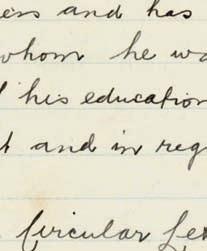 ens and has
whom he wa
his education
t and in reg
Circular Le